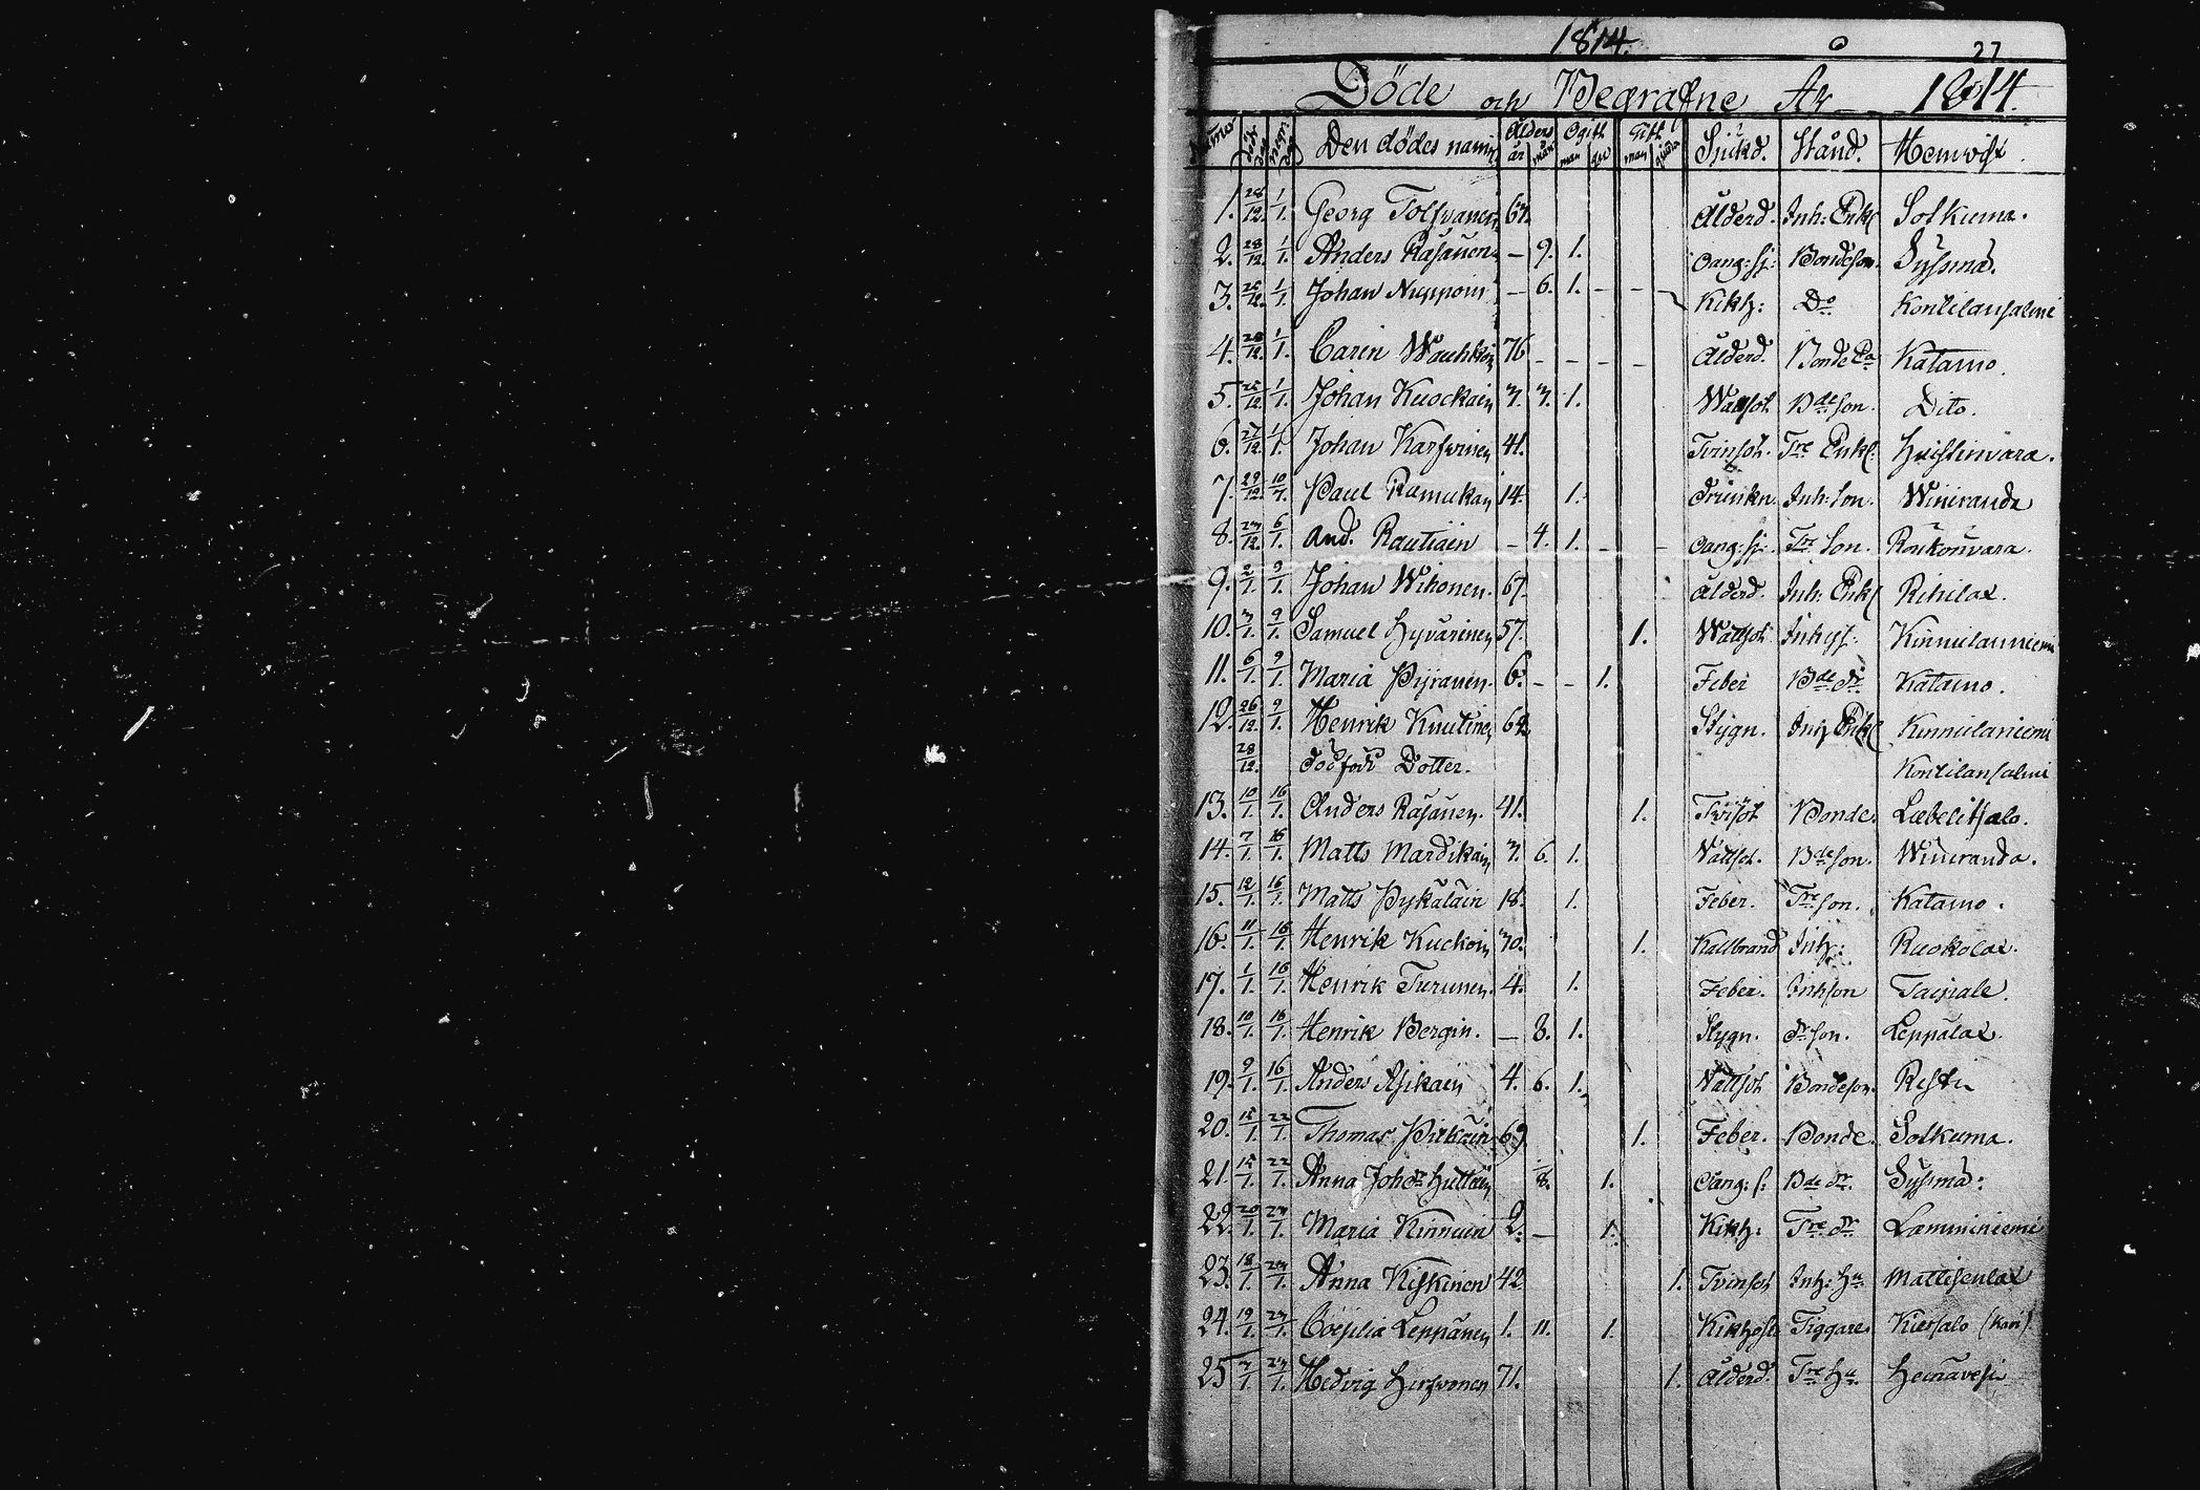 1814.
27
Döde och Begrafne År 1814.
Den dödes namn Ålders år mån Ogift man Gift man Sjukd. Stånd. Hemvist.
1. 28/12. 1/1. Georg Tolfvanen 67. Ålderd. Inh: Enkl Solkuma.
2. 28/12. 1/1. Anders Räsänen — 9. 1. Bondeson. Sysmä.
3. 1/1. Johan — 6. 1. – – Kikh: Do Kontilansalmi
4. 28/12. 1/1. Carin 76 – – – – Ålderd. Bonde Katamo.
5. 1/1. Johan Kuockain 7. 7. 1. Wattsot Bde son. Dito.
6. 27/12. 1/1. Johan Karfvinen 41. Tvinsot. Tre Enkl.
7. 29/12. Paul 14. 1. Drunkn. Inh: son. Winiranda
8. 27/12. 6/1. And. Rautiain – 4. 1. – – Tre Son. Rönkönvara.
9. 2/1. 9/1. Johan Wihonen. 67. Ålderd. Inh: Enkl Rihilax.
10. 7/1. 9/1. Samuel Hyvärinen 57. 1. Wattsot Inhys: Kinnulanniemi
11. 6/1. 9/1. Maria Pyränen. 6. – – 1. Feber Bde dr Katamo.
12. 26/12. 9/1. Henrik Knutinen Stygn. Inh Enkl Kinnulaniemi
28/12. Dödfödd Dotter. Kontilansalmi
13. 10/1. 16/1. Anders Räsänen. 41. 1. Bonde. Liebelitsalo.
14. 7/1. 16/1. Matts Mardikain 7. 6. 1. Wattsot. Bde son. Winiranda.
15. 12/1. 16/1. Matts Pykäläin 18. 1. Feber. Tre son. Katamo.
16. 11/1. 16/1. Henrik 70. 1. Kallbrand Inh: Ruokolax.
17. 1/1. 16/1. Henrik Turunen. 4. 1. Feber. Inhson Taipale.
18. 10/1. 16/1. Henrik Bergin. — 8. 1. Stygn. dr son. Leppälax.
19. 9/1. 16/1. Anders Asikain 4. 6. 1. Wattsot Bondeson. Risti
20. 15/1. 22/1. Thomas 69 1. Feber. Bonde. Solkuma.
21. 15/1. 22/1. Anna Joh dr 8. 1. Bde dr. Sysmä.
22. 20/1. 27/1. Maria Kinnuin 2. — 1. Kikh: Tre dr Lamminiemi
23. 18/1. 27/1. Anna Kiskinen 42. 1. Tvinsot Inh: Hu Mattisenlax
24. 19/1. 27/1. Leppänen 1. 11. 1. Kikhost Tiggare.
25 7/1. 27/1. Hedvig Hirfvonen 71. 1. Ålderd. Tre Hu. Heinävesi